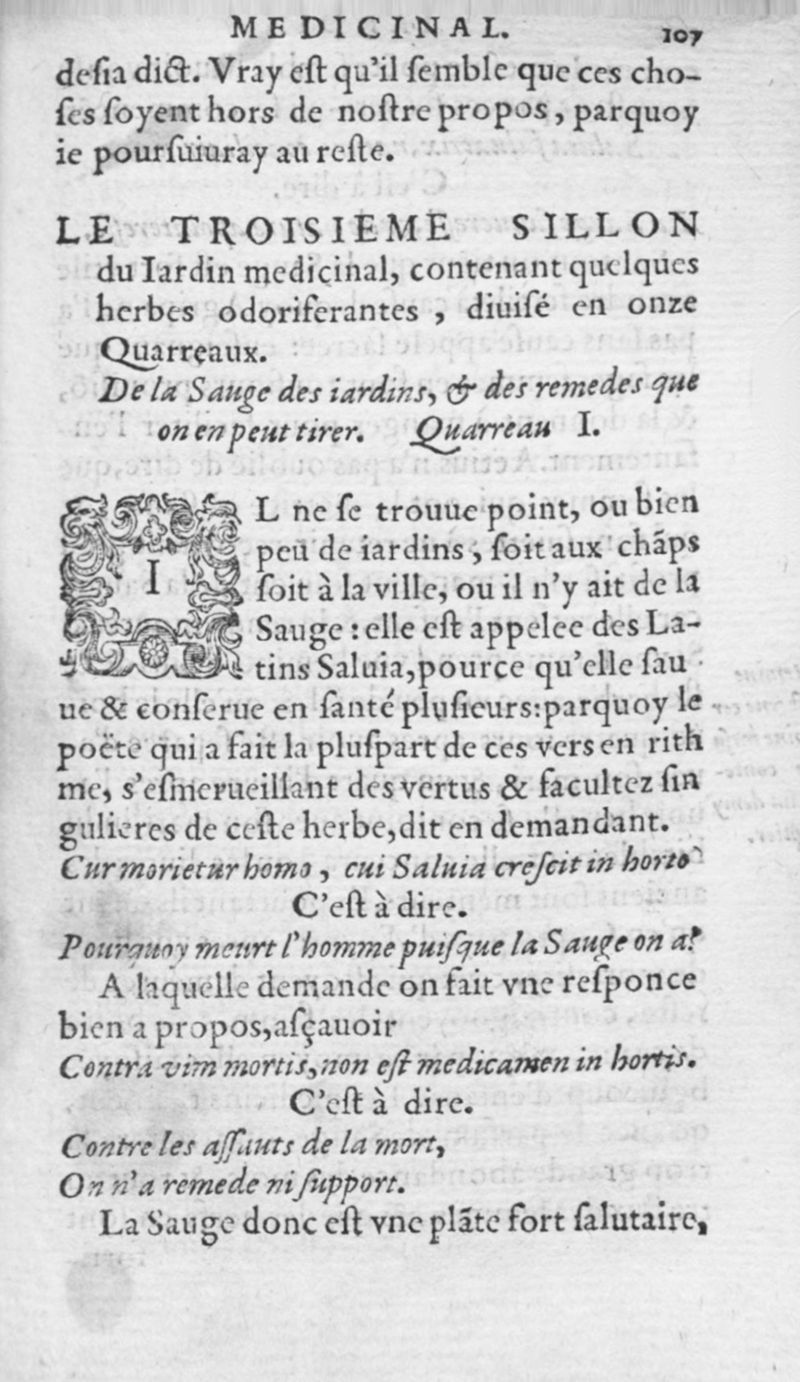 MEDICINAL. 107
desia dict. Vray est qu'il semble que ces cho-
ses soyent hors de nostre propos, parquoy
ie poursuiuray au reste.
LE TROISIEME SILLON
du Iardin medicinal, contenant quelques
herbes odoriferantes, diuisé en onze
Quarreaux.
De la Sauge des iardins, & des remedes que
on en peut tirer. Quarreau I.
IL ne se trouue point, ou bien
peu de iardins, soit aux chãps
soit à la ville, ou il n'y ait de la
Sauge: elle est appelee des La-
tins Saluia, pource qu'elle sau
ue & conserue en santé plusieurs: parquoy le
poëte qui a fait la pluspart de ces vers en rith
me, s'esmerueillant des vertus & facultez sin
gulieres de ceste herbe, dit en demandant.
Cur morietur homo, cui Saluia crescit in horto
C'est à dire.
Pourquoy meurt l'homme puisque la Sauge on a?
A laquelle demande on fait vne responce
bien a propos, asçauoir
Contra vim mortis, non est medicamen in hortis.
C'est à dire.
Contre les assauts de la mort,
On n'a remede ni support.
La Sauge donc est vne plãte fort salutaire,